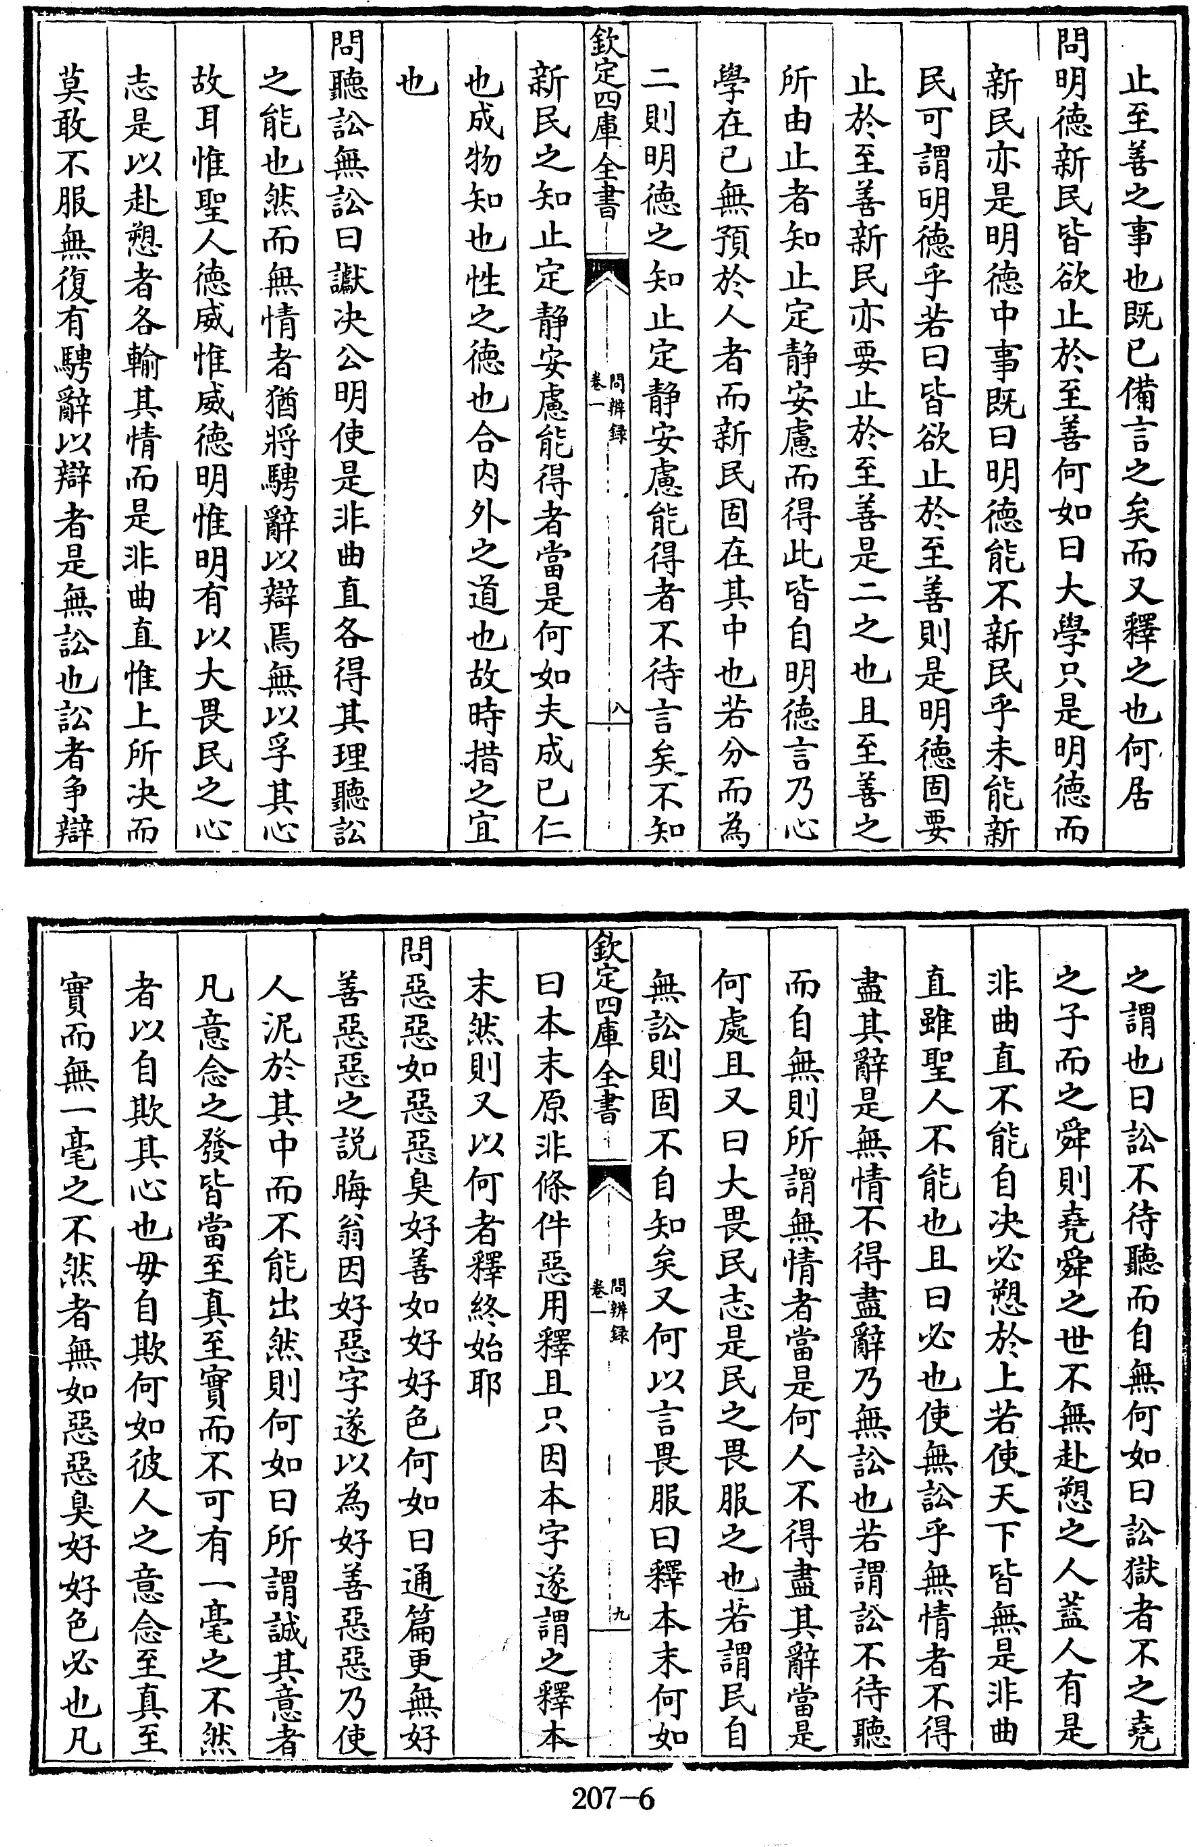 止至善之事也既已備言之矣而又釋之也何居
問明德新民皆欲止於至善何如曰大學只是明德而
新民亦是明德中事既曰明德能不新民乎未能新
民可謂明德乎若曰皆欲止於至善則是明德固要
止於至善新民亦要止於至善是二之也且至善之
所由止者知止定靜安慮而得此皆自明德言乃心
學在己無預於人者而新民固在其中也若分而為
二則明德之知止定靜安慮能得者不待言矣不知
欽定四庫全書
問辨録
卷一
八
新民之知止定靜安慮能得者當是何如夫成己仁
也成物知也性之德也合内外之道也故時措之宜
也
問聽訟無訟曰讞决公明使是非曲直各得其理聽訟
之能也然而無情者猶將騁辭以辯焉無以孚其心
故耳惟聖人德威惟威德明惟明有以大畏民之心
志是以赴愬者各輸其情而是非曲直惟上所决而
莫敢不服無復有騁辭以辯者是無訟也訟者争辯
之謂也曰訟不待聽而自無何如曰訟獄者不之堯
之子而之舜則堯舜之世不無赴愬之人蓋人有是
非曲直不能自决必愬於上若使天下皆無是非曲
直雖聖人不能也且曰必也使無訟乎無情者不得
盡其辭是無情不得盡辭乃無訟也若謂訟不待聽
而自無則所謂無情者當是何人不得盡其辭當是
何處且又曰大畏民志是民之畏服之也若謂民自
無訟則固不自知矣又何以言畏服曰釋本末何如
欽定四庫全書
問辨録
卷一
九
曰本末原非條件惡用釋且只因本字遂謂之釋本
末然則又以何者釋終始耶
問惡惡如惡惡臭好善如好好色何如曰通篇更無好
善惡惡之説晦翁因好惡字遂以為好善惡惡乃使
人泥於其中而不能出然則何如曰所謂誠其意者
凡意念之發皆當至真至實而不可有一毫之不然
者以自欺其心也毋自欺何如彼人之意念至真至
實而無一毫之不然者無如惡惡臭好好色必也凡
207-6